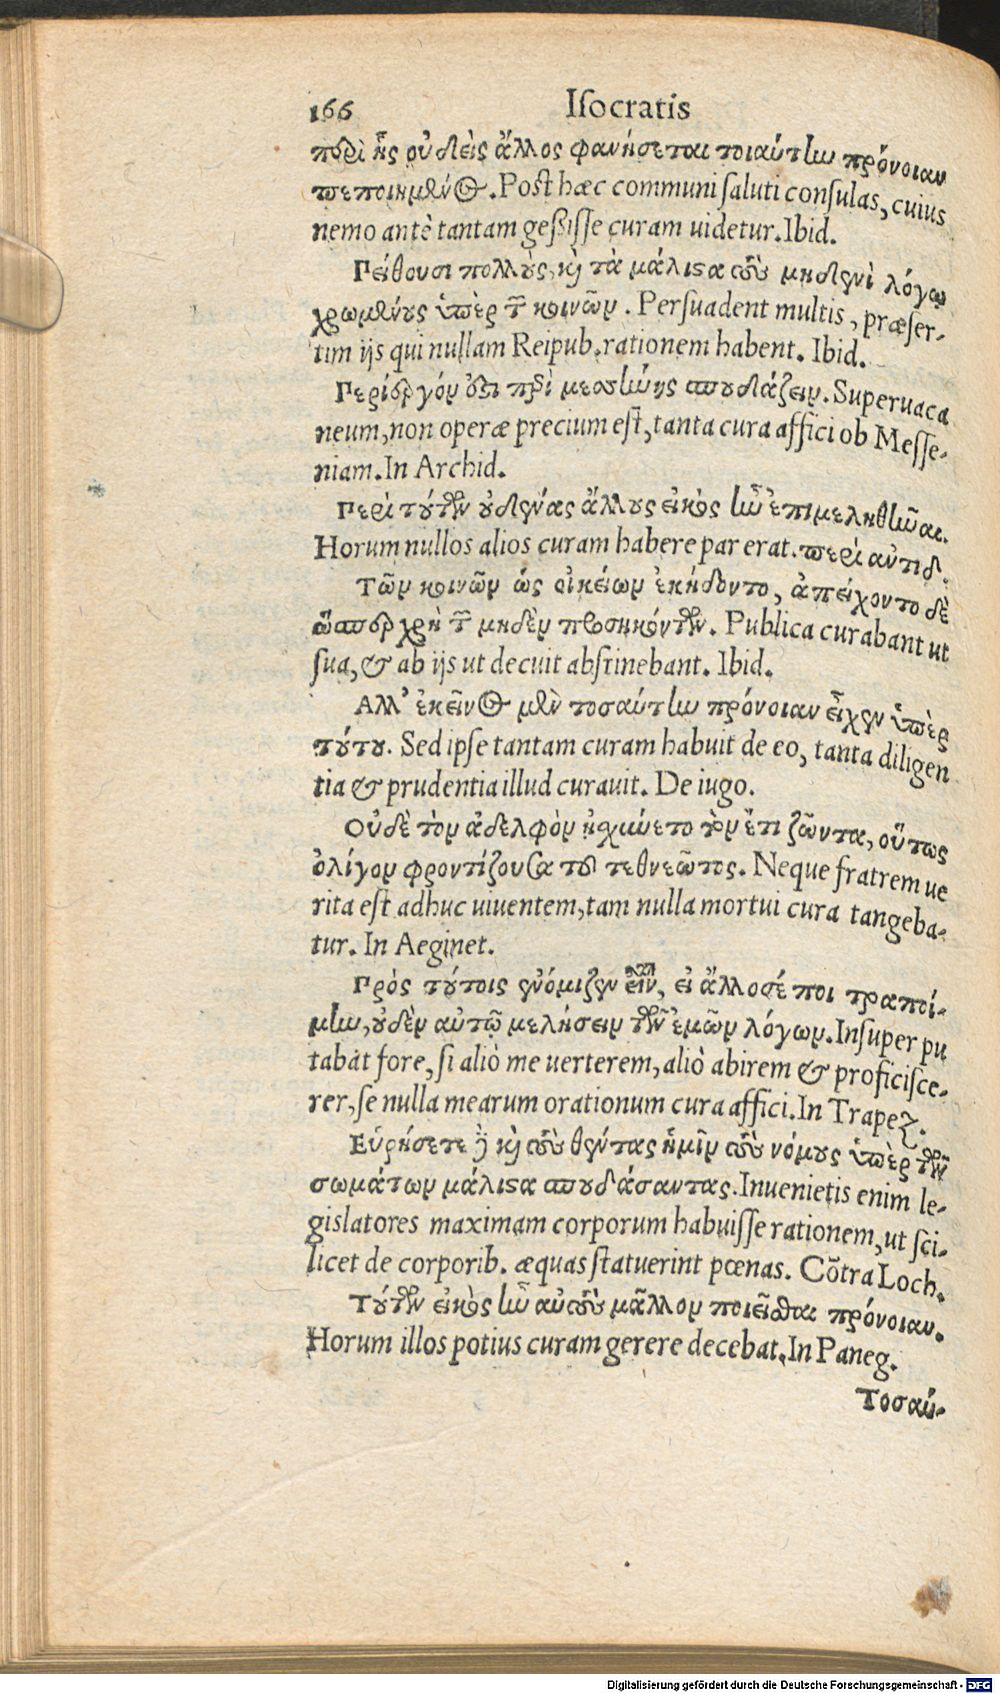 166 Isocratis
περὶ ἧς οὐδεὶς ἄλλος φανήσεται τοιαύτην πρόνοιαν
πεποιημένος. Post hæc communi saluti consulas, cuius
nemo antè tantam gessisse curam uidetur. Ibid.
Πείθουσι πολλοὺς, καὶ τὰ μάλιστα τοὺς μηδενὶ λόγῳ
χρωμένους ὑπὲρ τῶν κοινῶν. Persuadent multis, præser-
tim ijs qui nullam Reipub. rationem habent. Ibid.
Περίεργόν ὅτι περὶ μεσσήνης σπουδάζειν. Superuaca
neum, non operæ precium est, tanta cura affici ob Messe-
niam. In Archid.
Περὶ τούτων οὐδένας ἄλλους εἰκὸς ἦν ἐπιμεληθῆναι.
Horum nullos alios curam habere par erat. περὶ αὐτιδ.
Τῶν κοινῶν ὡς οἰκείων ἐκήδοντο, ἀπείχοντο δὲ
ὥσπερ χρὴ τῶν μηδὲν προσηκόντων. Publica curabant ut
sua, & ab ijs ut decuit abstinebant. Ibid.
Αλλ' ἐκεῖνος μὲν τοσαύτην πρόνοιαν εἶχεν ὑπὲρ
τούτου. Sed ipse tantam curam habuit de eo, tanta diligen
tia & prudentia illud curauit. De iugo.
Οὐδὲ τὸν ἀδελφὸν ᾐσχύνετο τὸν ἔτι ζῶντα, οὕτως
ὀλίγον φροντίζουσα τοῦ τεθνεῶτος. Neque fratrem ue
rita est adhuc uiuentem, tam nulla mortui cura tangeba-
tur. In Aeginet.
Πρὸς τούτοις ἐνόμιζεν εἰ ἄλλοσέ ποι τραποί-
μην, οὐδὲν αὐτῷ μελήσειν τῶν ἐμῶν λόγων. Insuper pu
tabat fore, si aliò me uerterem, aliò abirem & proficisce-
rer, se nulla mearum orationum cura affici. In Trapez.
Εὑρήσετε δὲ καὶ τοὺς θέντας ἡμῖν τοὺς νόμους ὑπὲρ τῶν
σωμάτων μάλιστα σπουδάσαντας. Inuenietis enim le-
gislatores maximam corporum habuisse rationem, ut sci-
licet de corporib. æquas statuerint pœnas. Cõtra Loch.
Τούτων εἰκὸς ἦν αὐτοὺς μᾶλλον ποιεῖσθαι πρόνοιαν.
Horum illos potius curam gerere decebat. In Paneg.
Τοσαύ-
Digitalisierung gefördert durch die Deutsche Forschungsgemeinschaft - DFG